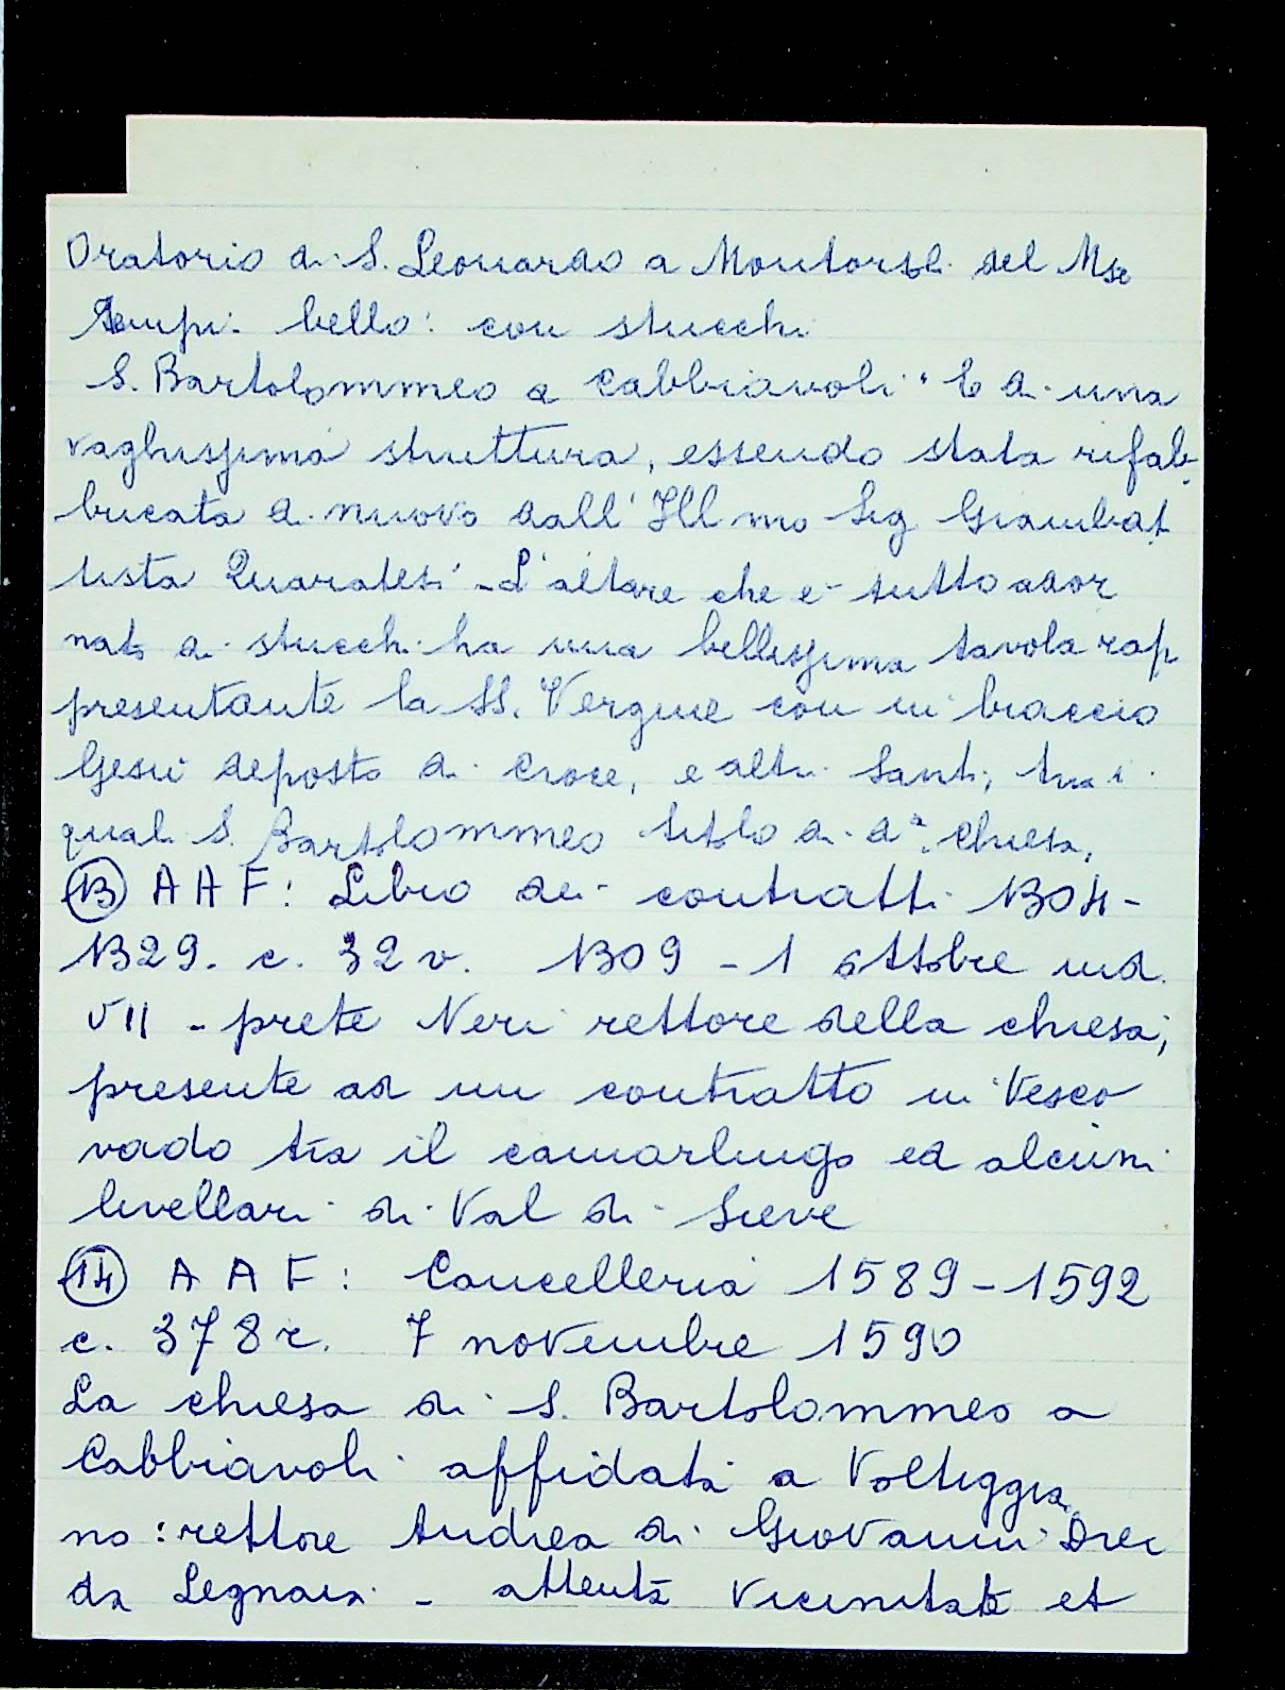 Oratorio di S. Leonardo a Montorsoli del Mse
Tempi. bello: con stucchi
S. Bartolommeo a Cabbiavoli "È di una
vaghissima struttura, essendo stata rifab
bricata di nuovo dall'Ill mo Sig Giambat
tista Quaratesi - L'altare che è tutto ador
nato di stucchi ha una bellissima tavola rap
presentante la SS. Vergine con in braccio
Gesù deposto di Croce, e altri Santi, tra i
quali S. Bartolommeo titolo di d.a Chiesa.
(13) A A F: Libro dei contratti 1304-
1329. c. 32 v. 1309 - 1 ottobre ind.
VII - prete Neri rettore della chiesa,
presente ad un contratto in Vesco
vado tra il camarlingo ed alcuni
livellari di Val di Sieve
(14) A A F: Cancelleria 1589-1592
c. 378 r. 7 novembre 1590
La chiesa di S. Bartolommeo a
Cabbiavoli affidata a Volteggia
no: rettore Andrea di Giovanni Drei
da Legnaia - attenta vicinitate et